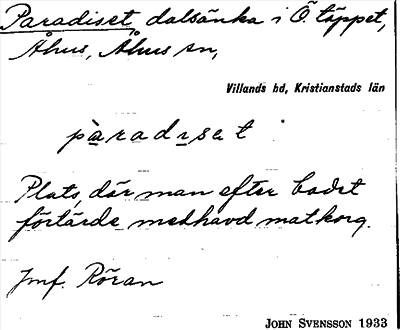 Paradiset, dalsänka i Ö. täppet,
Åhus, Åhus sn,
Villands hd, Kristianstads län
pàradiset
Plats, där man efter badet
förtärde medhavd matkorg.
Jmf. Röran
JOHN SVENSSON 1933